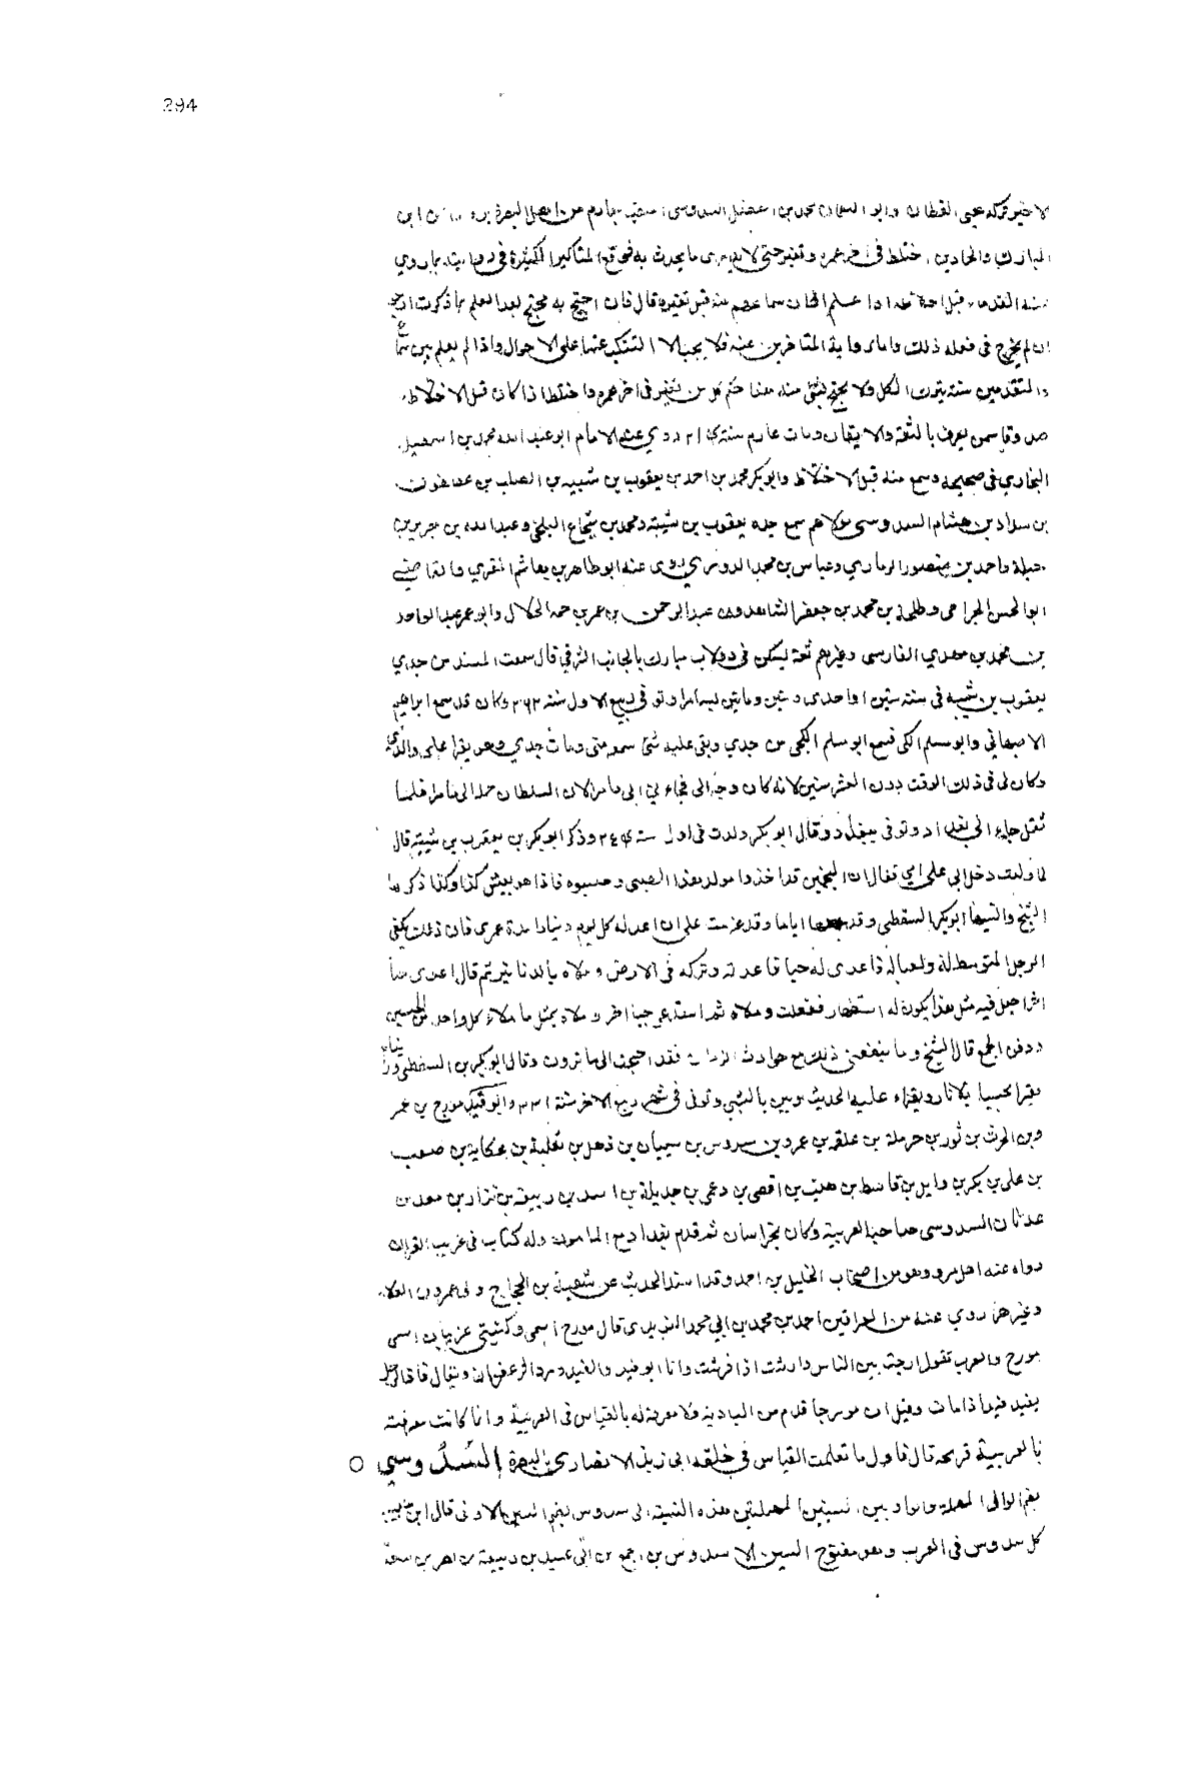 294
الاخير تركه يحيى القطان وابو النعمان محمد بن الفضل السدوسى يلقب بعارم من اهل البصرة يروى عن ابن
المبارك والحمادين اختلط فى اخر عمره وتغير حتى لا يدرى ما يحدث به فوقع المناكير الكثيرة فى روايته فما روي
عنه القدماء قبل اختلاطه اذا علم ان سماعهم منه قبل تغيره قال فان احتج به محتج بعد العلم بما ذكرت ارجو
ان لم يخرج فى فعله ذلك واما رواية المتاخرين عنه فلا يجب الا التنكب عنها على الاحوال واذا لم يعلم بين سماع
المتقدمين منه يترك الكل ولا يحتج بشئ منه هذا حكم كل من تغير فى اخر عمره واختلط اذا كان قبل الاختلاط
صدوقا ممن يعرف بالثقة والاتقان ومات عارم سنة روي عنه الامام ابو عبد الله محمد بن اسمعيل
البخاري فى صحيحه وسمع منه قبل الاختلاط وابو بكر محمد بن احمد بن يعقوب بن شيبه بن الصلت بن عصفور
بن سداد بن هشام السدوسى مولاهم سمع جده يعقوب بن شيبة ومحمد بن شجاع البلخى وعبد الله بن جرير بن
جبلة واحمد بن منصور الرمادي وعباس بن محمد الدوري روى عنه ابو طاهر بن ابي هاشم المقري والقاضى
ابو الحسن الجراحى وطلحة بن محمد بن جعفر الشاهد وعبد الرحمن بن عمر بن حمه الخلال وابو عمر عبد الواحد
بن محمد بن مهدي الفارسى وغيرهم ثقة يسكن فى دولاب مبارك بالجانب الشرقي قال سمعت المسند من جدي
يعقوب بن شيبه فى سنة ستين واحدى وستين ومايتين بسامرا وتوفى فى ربيع الاول سنة ٢٦٢ وكان قد سمع ابراهيم
الاصبهاني وابو مسلم الكجى فسمع ابو مسلم الكجى من جدي وبقى عليه شئ سمعه منى ومات جدي وهو يقرا على والذي
وكان لى فى ذلك الوقت دون العشر سنين لانه كان وجه الى فجاء بي ابى الى سامرا لان السلطان حمله الى سامرا فلما
ثقل جاء الى بغداد وتوفى ببغداد وقال ابو بكر ولدت فى اول سنة وذكر ابو بكر بن يعقوب بن شيبة قال
لما ولدت دخل ابى على امي فقال ان المنجمين قد اخذوا مولد هذا الصبى وحسبوه فاذا هو يعيش كذا وكذا ذكرها
الشيخ وانسيها ابو بكر السقطى وقد حسبتها اياما وقد عزمت على ان اعد له كل يوم دينارا مدة عمره فان ذلك يكفى
الرجل المتوسط له ولعياله فاعدى له حبا فاعدته وتركه فى الارض وملاه بالدنانير ثم قال اعدى حبا
اخر اجعل فيه مثل هذا يكون له استظهار ففعلت وملاه ثم استدعى حبا اخر وملاه بمثل ما ملا كل واحد من الحبين
ودفن الجميع قال الشيخ وما نفعنى ذلك مع حوادث الزمان فقد احتجت الى ما ترون وقال ابو بكر بن السقطى وراينا
فقيرا يجينا بلا ازار ويقراء عليه الحديث ويبر بالشئ وتوفى فى شهر ربيع الاخر سنة ٣٣١ وابو فيد مورج بن عمر
وبن الحرث بن ثور بن حرملة بن علقمة بن عمرو بن سدوس بن سيبان بن ذهل بن ثعلبة بن عكاية بن صعب
بن على بن بكر بن وايل بن قاسط بن هنب بن اقصى بن دعمى بن جديلة بن اسد بن ربيعة بن نزار بن معد بن
عدنان السدوسى صاحب العربية وكان بخراسان ثم قدم بغداد مع المامون وله كتاب فى غريب القران
رواه عنه اهل مرو وهو من اصحاب الخليل بن احمد وقد اسند الحديث عن شعبة بن الحجاج وابى عمرو بن العلا
وغيرهما روي عنه من العراقين احمد بن محمد بن ابي محمد اليزيدى قال مورج اسمى وكنيتى غريبان اسمى
مورج والعرب تقول ارجت بين الناس وارشت اذا فرشت وانا ابو فيد والفيد ورد الزعفران ويقال فاد الرجل
يفيد فيدا اذا مات وقيل ان مورجا قدم من البادية ولا معرفة له بالقياس فى العربية وانما كانت معرفته
بالعربية قريحة قال فاول ما تعلمت القياس فى حلقة ابى زيد الانصاري بالبصرة السُّدُوسي
بضم الوالى المهملة والواو بين السينين المهملتين هذه النسبة الى سدوس بضم السين الاولى قال ابن حبيب
كل سدوس فى العرب وهو مفتوح السين الا سدوس بن اجمع بن ابي عبيد بن ربيعة بن نصر بن سعد